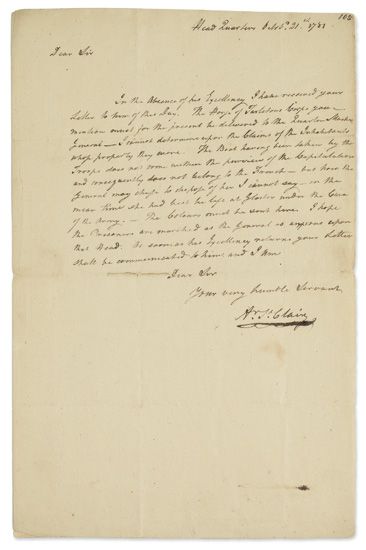 108
Head Quarters Octob.r 21.st 1781
Dear Sir
In the Absence of his Excellency I have received your
Letter to him of this day. The Horses of Tarletons Corps you
mention must for the present be delivered to the Quarter Master
General – I cannot determine upon the Claims of the Inhabitants
whose property they were. The Boat having been taken by the
Troops does not come within the purview of the Capitulation
and consequently does not belong to the French – but how the
General may chuse to dispose of her I cannot say – in the
mean time she had best be left at Gloster under the Care
of the Army. – The Colours must be sent here. I hope
the Prisoners are marched as the General is anxious upon
that Head. As soon as his Excellency returns your Letter
shall be communicated to him and I am
Dear Sir
Your very humble Servant
Ar. St. Clair